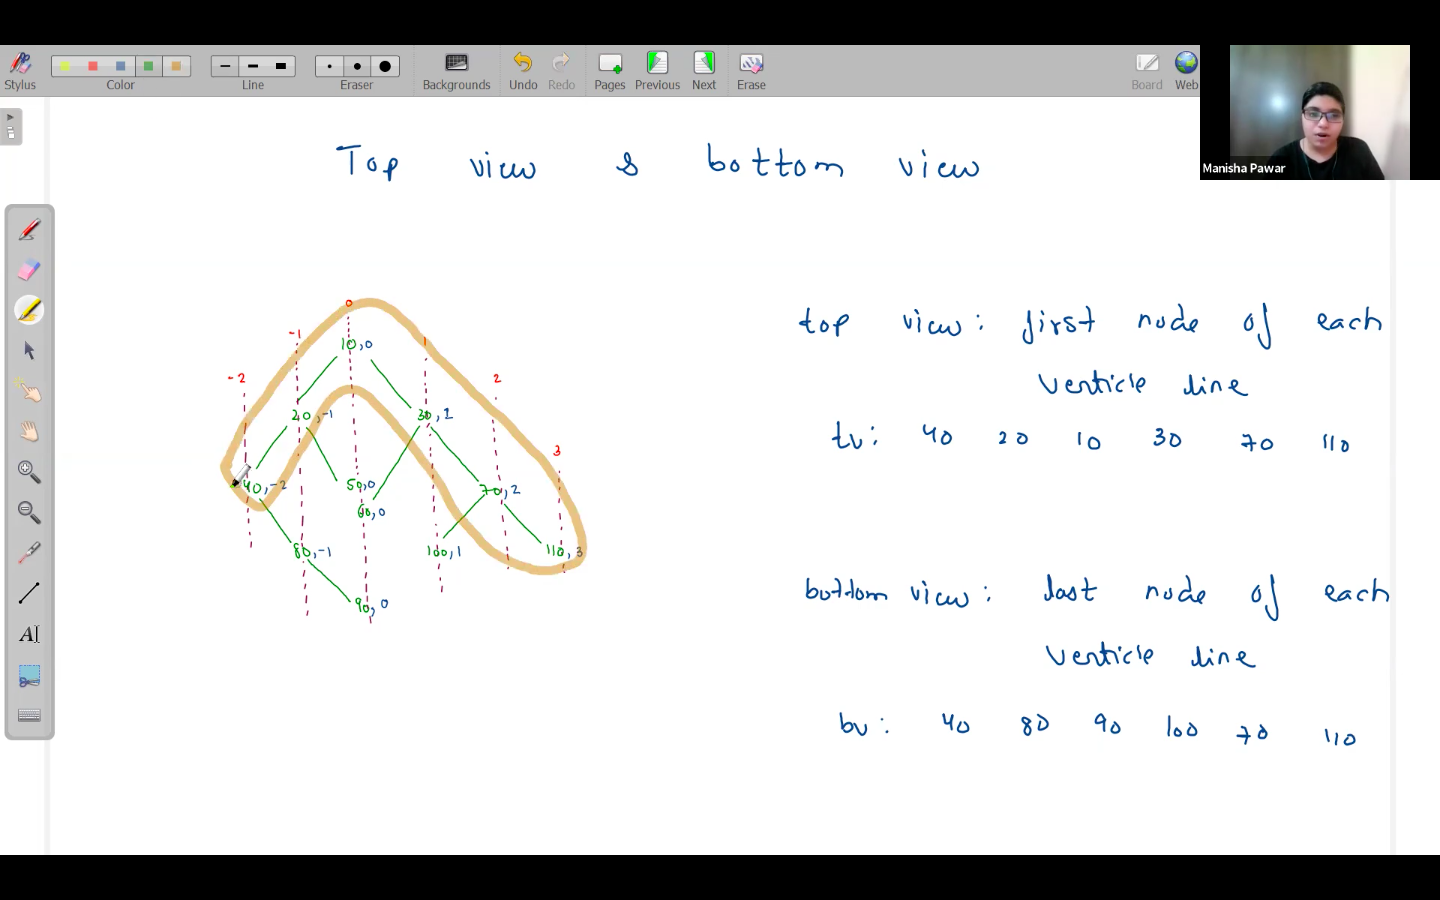 Stylus Color Line Eraser Backgrounds Undo Redo Pages Previous Next Erase Board Web
Manisha Pawar
Top view & bottom view
0
-1
1
10,0
-2
2
20,-1
30,1
3
40,-2
50,0
70,2
60,0
80,-1
100,1
110,3
90,0
top view: first node of each
verticle line
tv: 40 20 10 30 70 110
bottom view: last node of each
verticle line
bv: 40 80 90 100 70 110